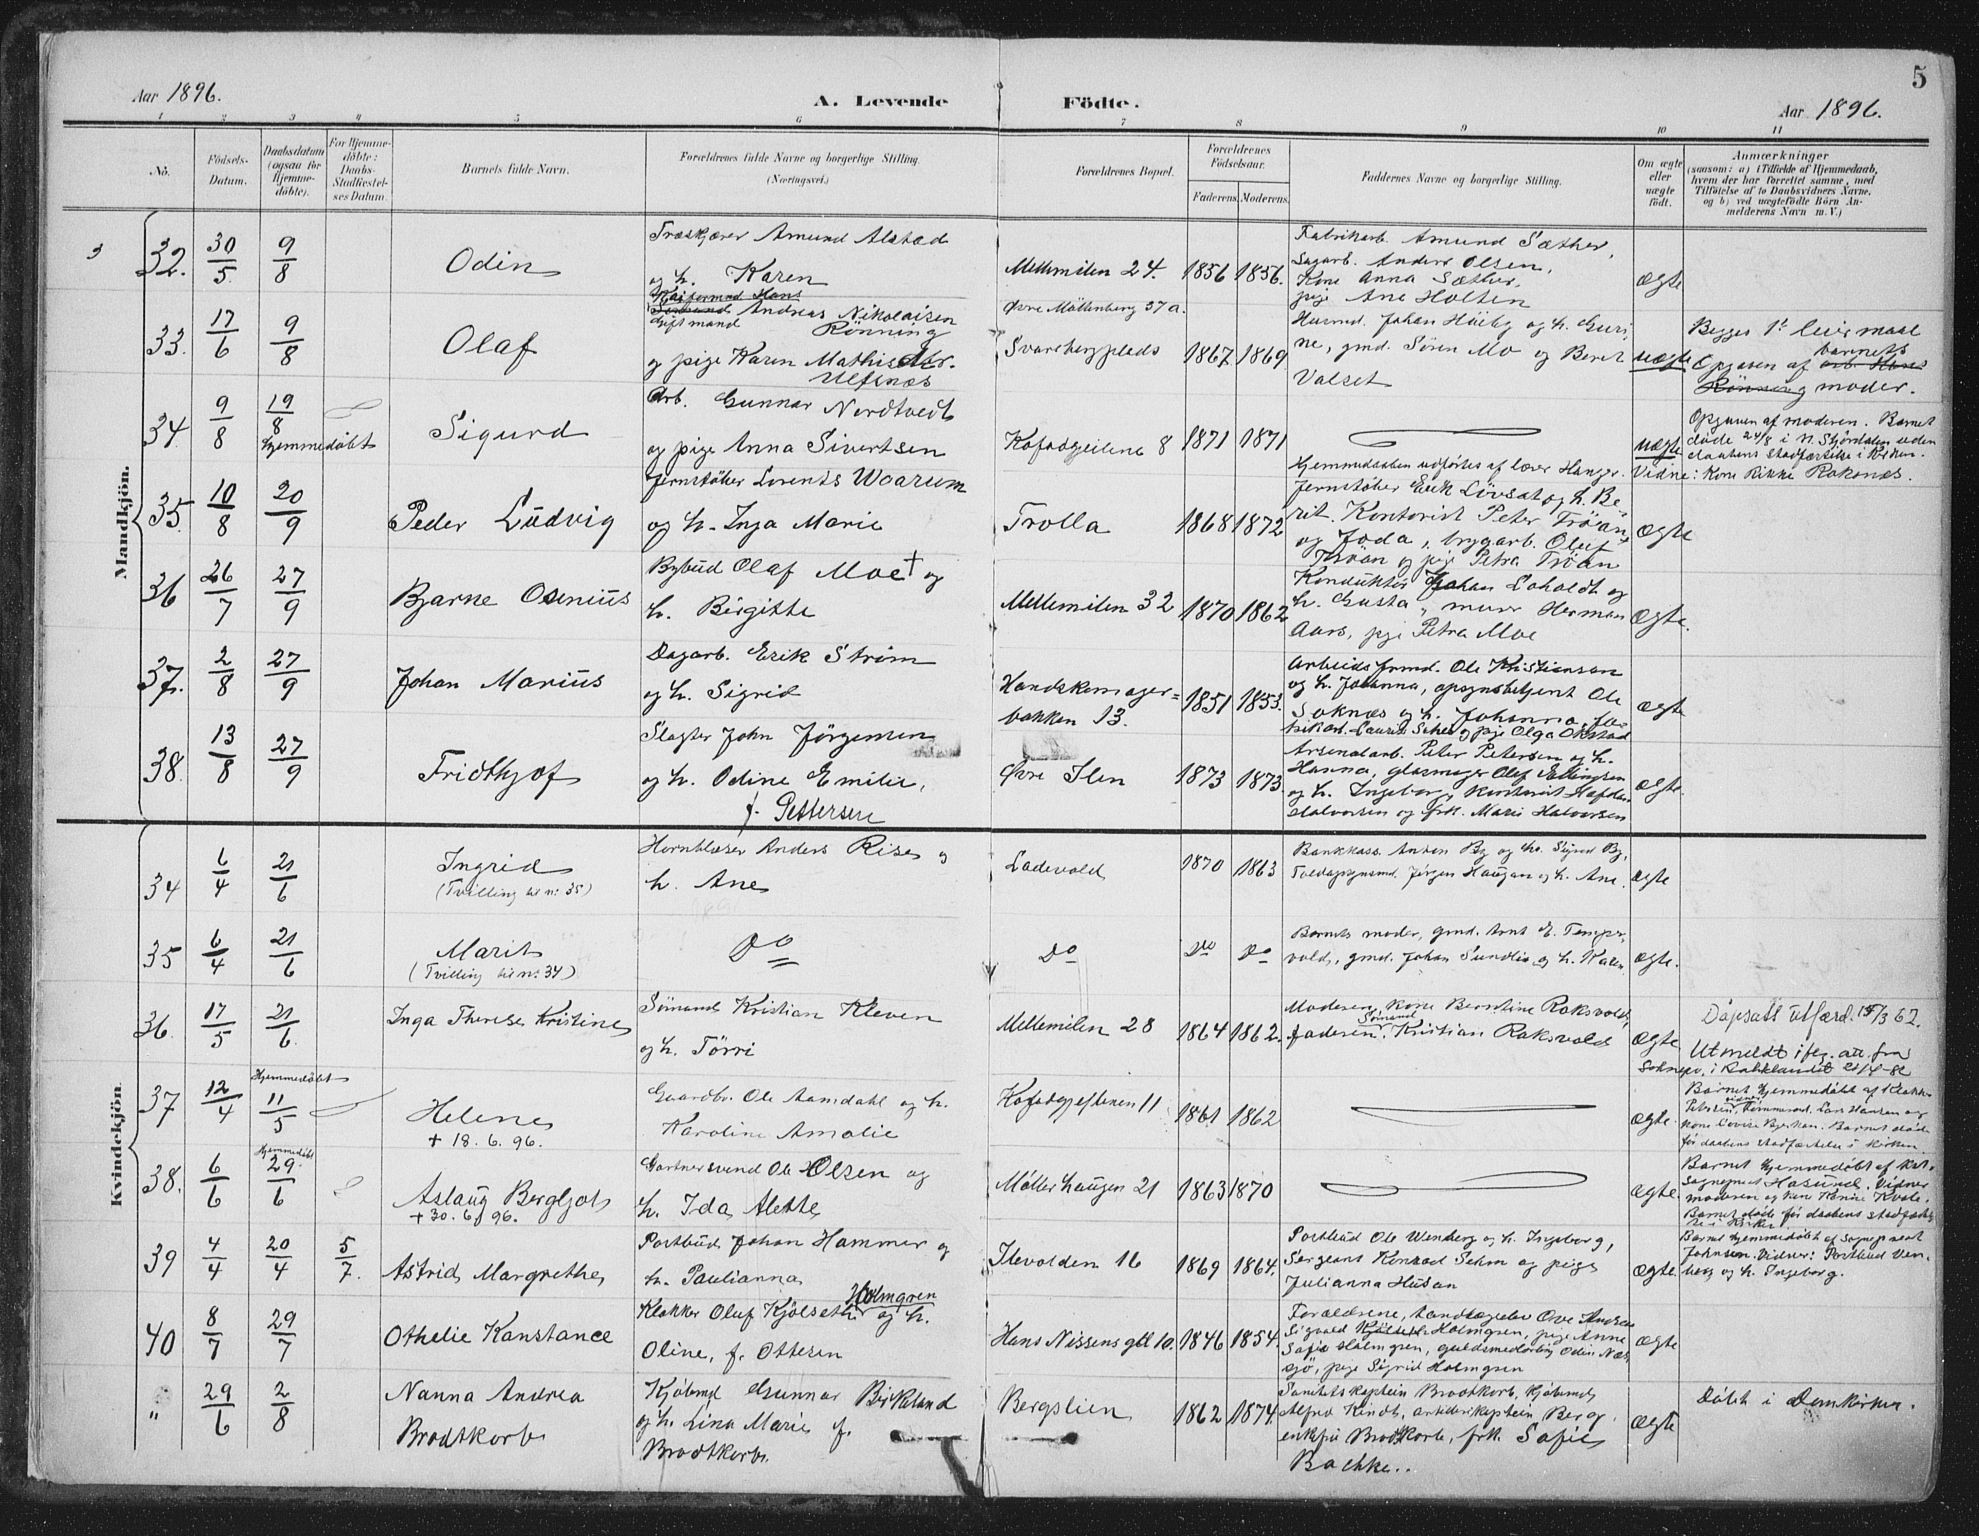 5
Aar 1896.
A. Levende Födte.
Aar 1896.
1 2 3 4 5 6 7 8 9 10 11
No.
Födsels-
Datum.
Daabsdatum
(ogsaa for
Hjemme-
döbte).
For Hjemme-
döbte:
Daabs-
Stadfæstel-
ses Datum.
Barnets fulde Navn.
Forældrenes fulde Navne og borgerlige Stilling.
(Næringsvei.)
Forældrenes Bopæl.
Forældrenes
Födselsaar.
Faderens. Moderens.
Faddernes Navne og borgerlige Stilling.
Om ægte
eller
uægte
födt.
Anmærkninger
(saasom: a) i Tilfælde af Hjemmedaab,
hvem der har forrettet samme, med
Tilföielse af to Daabsvidners Navne,
og b) ved uægtefödte Börn An-
melderens Navn m. V.)
Mandkjön.
3
32. 30/5 9/8
Odin
Træskjærer Amund Alstad
og h. Karen
Mellemilen 24.
1856 1856.
Fabrikarb. Amund Sæther,
Sagarb. Anders Olsen,
Kone Anna Sæther,
pige Ane Holten
ægte
33. 17/6 9/8
Olaf
Andreas Nikolaisen
Giftmand Rönning
og pige Karen Mathisdtr.
Ulfsnæs
Øvre Möllenberg 37a.
Svarebergplads
1867 1869
Husmd. Johan Høiby og h. Guri-
ne, gmd. Sören Mo og Beret
Valset
uægte
Begges 1ste leiermaal
Opgaven af barnets
moder.
34. 9/8 19/8
hjemmedöbt
Sigurd
Arb. Gunnar Nordtvedt
og pige Anna Sivertsen
Kofodgeilene 8
1871 1871
uægte
Opgaven af moderen. Barnet
döde 24/8 i N. Stjördalen uden
daabens stadfæstelse i Kirken.
Hjemmedaaben udförtes af lærer Hanger. Vidne: Kone Rikke Roknæs.
35. 10/8 20/9
Peder Ludvig
Jernstöber Lorents Waarum
og h. Inga Marie
Trolla
1868 1872
Jernstöber Erik Lövset og h. Be-
rit. Kontorist Peter Tröan
og Joda, brygarb. Oluf
Tröan og pige Petra Tröan
ægte
36 26/7 27/9
Bjarne Osenius
Bybud Olaf Moe † og
h. Birgitte
Mellemilen 32
1870 1862
Konduktör Johan Loholdt og
h. Gusta, murer Herman
Aars, pige Petra Moe
ægte.
37. 2/8 27/9
Johan Marius
Dagarb. Erik Ström
og h. Sigrid
Handskemager=
bakken 13.
1851 1853.
Arbeidsformd. Ole Kristiansen
og h. Johanna, opsynsbetjent Ole
Soknæs og h. Johanna, fa-
brikarb. Laurits Seher og pige Olga Okstad
ægte
38. 13/8 27/9
Fridthjof
Slagter John Jörgensen
og h. Odine Emilie,
f. Pettersen
Øvre Ilen
1873 1873
Arsenalarb. Peter Petersen og h.
Hanna, glasmager Olaf Ellingsen
og h. Ingeborg, Kontorist Hafdan
Halvorsen og frk. Marie Halvorsen
ægte.
Kvindekjön.
34 6/4 21/6
Ingrid
(Tvilling til no. 35)
Hornblæser Anders Rise og
h. Ane
Ladevold
1870 1863
Bankkass. Anton By og h. Sigrid By,
Toldopsynsmd. Jörgen Haugan og h. Ane.
ægte
35 6/4 21/6
Marit
(Tvilling til no. 34)
Do
Do
Do Do
Barnets moder, gmd. Arnt E. Temper-
vold, gmd. Johan Sundlie og h. Karen
ægte.
36. 17/5 21/6
Inga Therese Kristine
Sömand Kristian Kleven
og h. Törri
Mellemilen 28
1864 1862.
Moderen, kone Berntine Roksvold,
faderen, Sömand Kristian Roksvold
ægte
Dåpsatt. utferd. 15/3 62.
Utmeldt iflg. att. fra
Sokneprl. i 21/4-82
37 12/4 11/5
Hjemmedöbt
Helene
+ 18. 6. 96.
Gaardbr. Ole Aamdahl og h.
Karoline Amalie
Kofodgjeilenen 11
1861 1862
ægte.
Barnet hjemmedöbt af Klokker
Petersen, vidner Lars Hansen og
kone Lovise Bjerkan. Barnet döde
för daabens stadfæstelse i kirken
38. 6/6 29/6
Hjemmedöbt
Aslaug Bergljot
+ 30. 6. 96.
Gartnersvend Ole Olsen og
h. Ida Alette
Möllerhaugen 21
1863 1870
ægte
Barnet hjemmedöbt af Kst.
Sogneprest Hasund. Vidner
moderen og kone Kvale.
Barnet döde för daabens stadfæstel-
se i kirken.
39 4/4 20/4 5/7.
Astrid Margrethe
Postbud Johan Hammer og
h. Paulianna
Ilevolden 16
1869 1864.
Postbud Ole Wenberg og h. Ingeborg,
Sergeant Konrad Sehm og pige
Julianna Husan
ægte.
Barnet hjemmedöbt af Sogneprest
Johnsen. Vidner: Postbud Wen-
berg og h. Ingeborg.
40 8/7 29/7
Othelie Konstance
Klokker Oluf Kjölseth Holmgren og h.
Oline, f. Ottesen
Hans Nissens gt 10.
1846 1854.
Forældrene, tandlæge Ove Andreas
Sigvald Holmgren, pige Anne
Sofie Holmgren, guldsmedlærling Odin Næs-
sjö, pige Sigrid Holmgren
ægte
„ 29/6 2/8
Nanna Andrea
Brodtkorb
Kjöbmd Gunnar Birkeland
og h. Lina Marie f.
Brodtkorb.
Bergslien
1862 1874.
Sanitetskaptein Brodtkorb, Kjöbmd.
Alfred Kindt, artillerikaptein Berg,
enkefru Brodtkorb, frk. Sofie
Bachke..
ægte
Döbt i Domkirken.